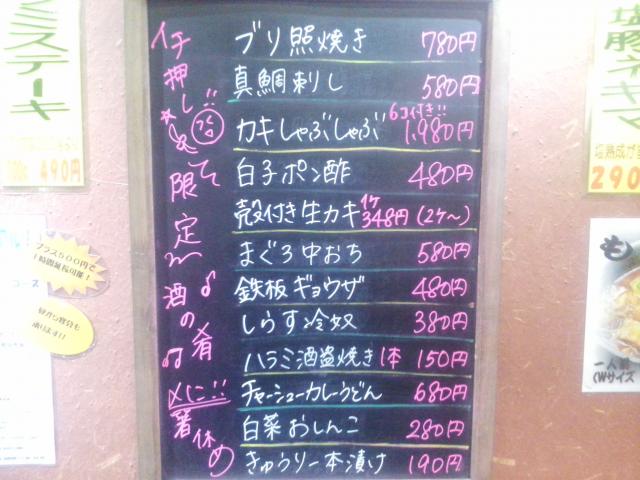 イチ押し!!
限定
酒の肴
〆に!!
箸休め
ブリ照焼き 780円
真鯛刺し 580円
カキしゃぶしゃぶ 6コ付き!! 1,980円
白子ポン酢 480円
殻付き生カキ 1ケ 348円(2ケ~)
まぐろ中おち 580円
鉄板ギョウザ 480円
しらす冷奴 380円
ハラミ酒盗焼き 1本 150円
チャーシューカレーうどん 680円
白菜おしんこ 280円
きゅうり一本漬け 190円
ミステーキ
490円
プラス500円で
1時間延長可能!
塩豚ネギマ
塩熟成が
290
も
一人前
(Wサイズ
コース